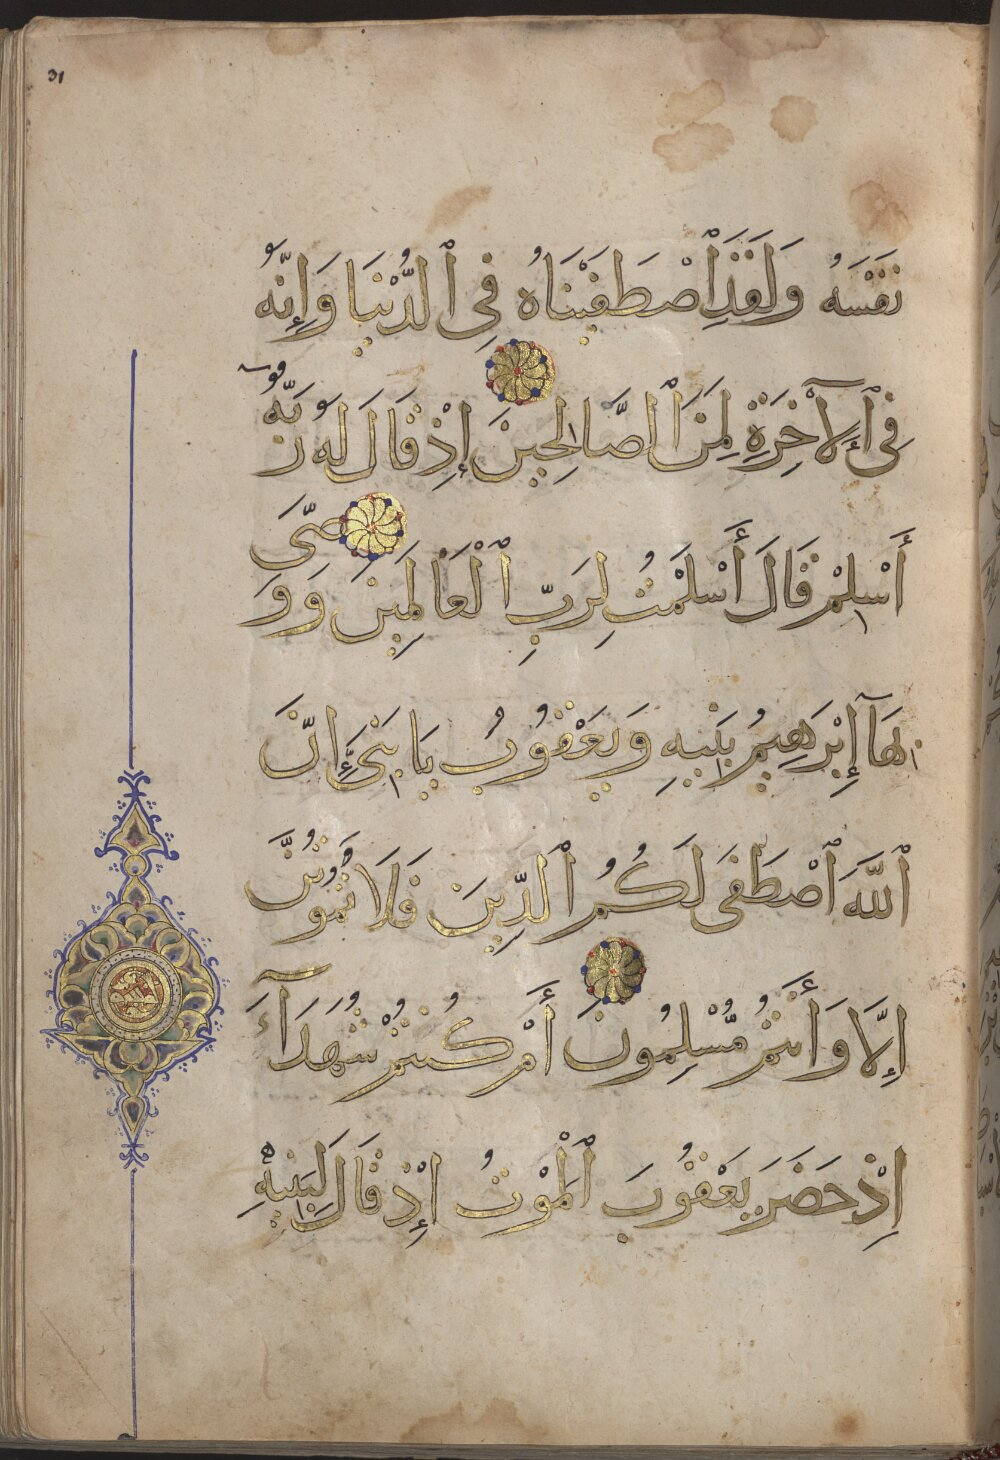 31
نَفْسَهُ وَلَقَدِ ٱصْطَفَيْنَاهُ فِي ٱلدُّنْيَا وَإِنَّهُ
فِي ٱلْآخِرَةِ لَمِنَ ٱلصَّالِحِينَ إِذْ قَالَ لَهُ رَبُّهُ
أَسْلِمْ قَالَ أَسْلَمْتُ لِرَبِّ ٱلْعَالَمِينَ وَوَصَّى
بِهَآ إِبْرَهِيمُ بَنِيهِ وَيَعْقُوبُ يَا بَنِيَّ إِنَّ
ٱللَّهَ ٱصْطَفَى لَكُمُ ٱلدِّينَ فَلَا تَمُوتُنَّ
إِلَّا وَأَنتُم مُّسْلِمُونَ أَمْ كُنتُمْ شُهَدَآءَ
إِذْ حَضَرَ يَعْقُوبَ ٱلْمَوْتُ إِذْ قَالَ لِبَنِيهِ